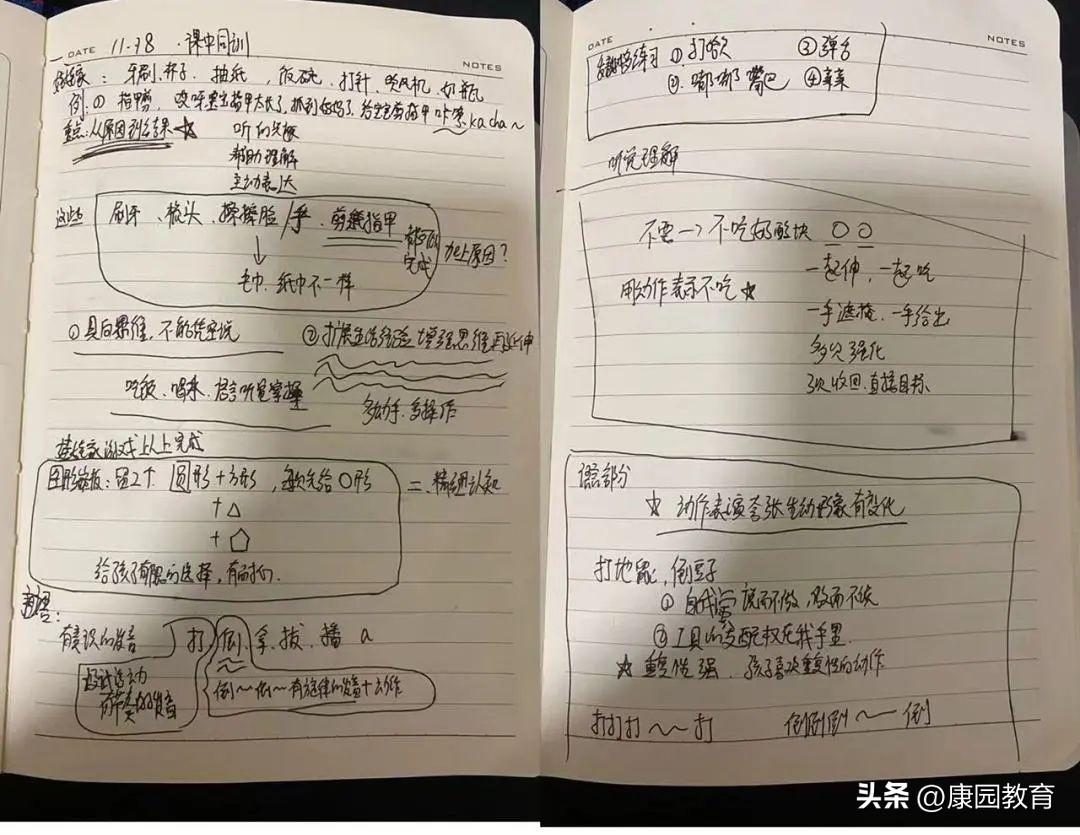 DATE 11.28 . 课中同训
NOTES
过家家: 牙刷、杯子、抽纸, 饭碗、打针、吹风机、奶瓶
例: ① 指甲剪, 哎呀宝宝指甲太长了, 抓到妈妈了, 给宝宝剪指甲 咔嚓 kacha~
重点: 从原因到结果 ☆
听的兴趣
帮助理解
主动表达
这些
刷牙、梳头、擦擦脸/手、剪纸指甲 都可以完成 加上原因?
↓
毛巾、纸巾不一样
① 具向思维, 不能凭空说
② 扩展生活经验 增强思维再延伸
吃饭、喝水、语言听觉掌握
多动手、多操作
游戏上以上完成
图形嵌板: 留2个 圆形+方形, 每次先给〇形 = 精细认知
+ △
+ ⬠
给孩子有限的选择, 有目的.
言语:
有意识的发音 打 倒、拿、拔、播 a
运动
有节奏的发音
倒~倒~有旋律的发音+动作
DATE
NOTES
练习 ① 打哈欠 ③ 弹舌
②. 嘟嘟嘟嘴巴 ④ 亲亲
听觉理解
不要 —> 不吃奶酪块 〇〇
一起伸, 一起吃
用动作表示不吃 ☆
一手遮掩, 一手给出
多次强化
3次收回, 直接目标
部分
☆ 动作表演夸张生动形象有变化
打地鼠, 倒豆子
① 说而不做, 做而不谈
② 工具的支配权在我手里.
☆ 重复性强, 孩子喜欢重复性的动作
打打打~~打 倒倒倒~~倒
头条 @康园教育